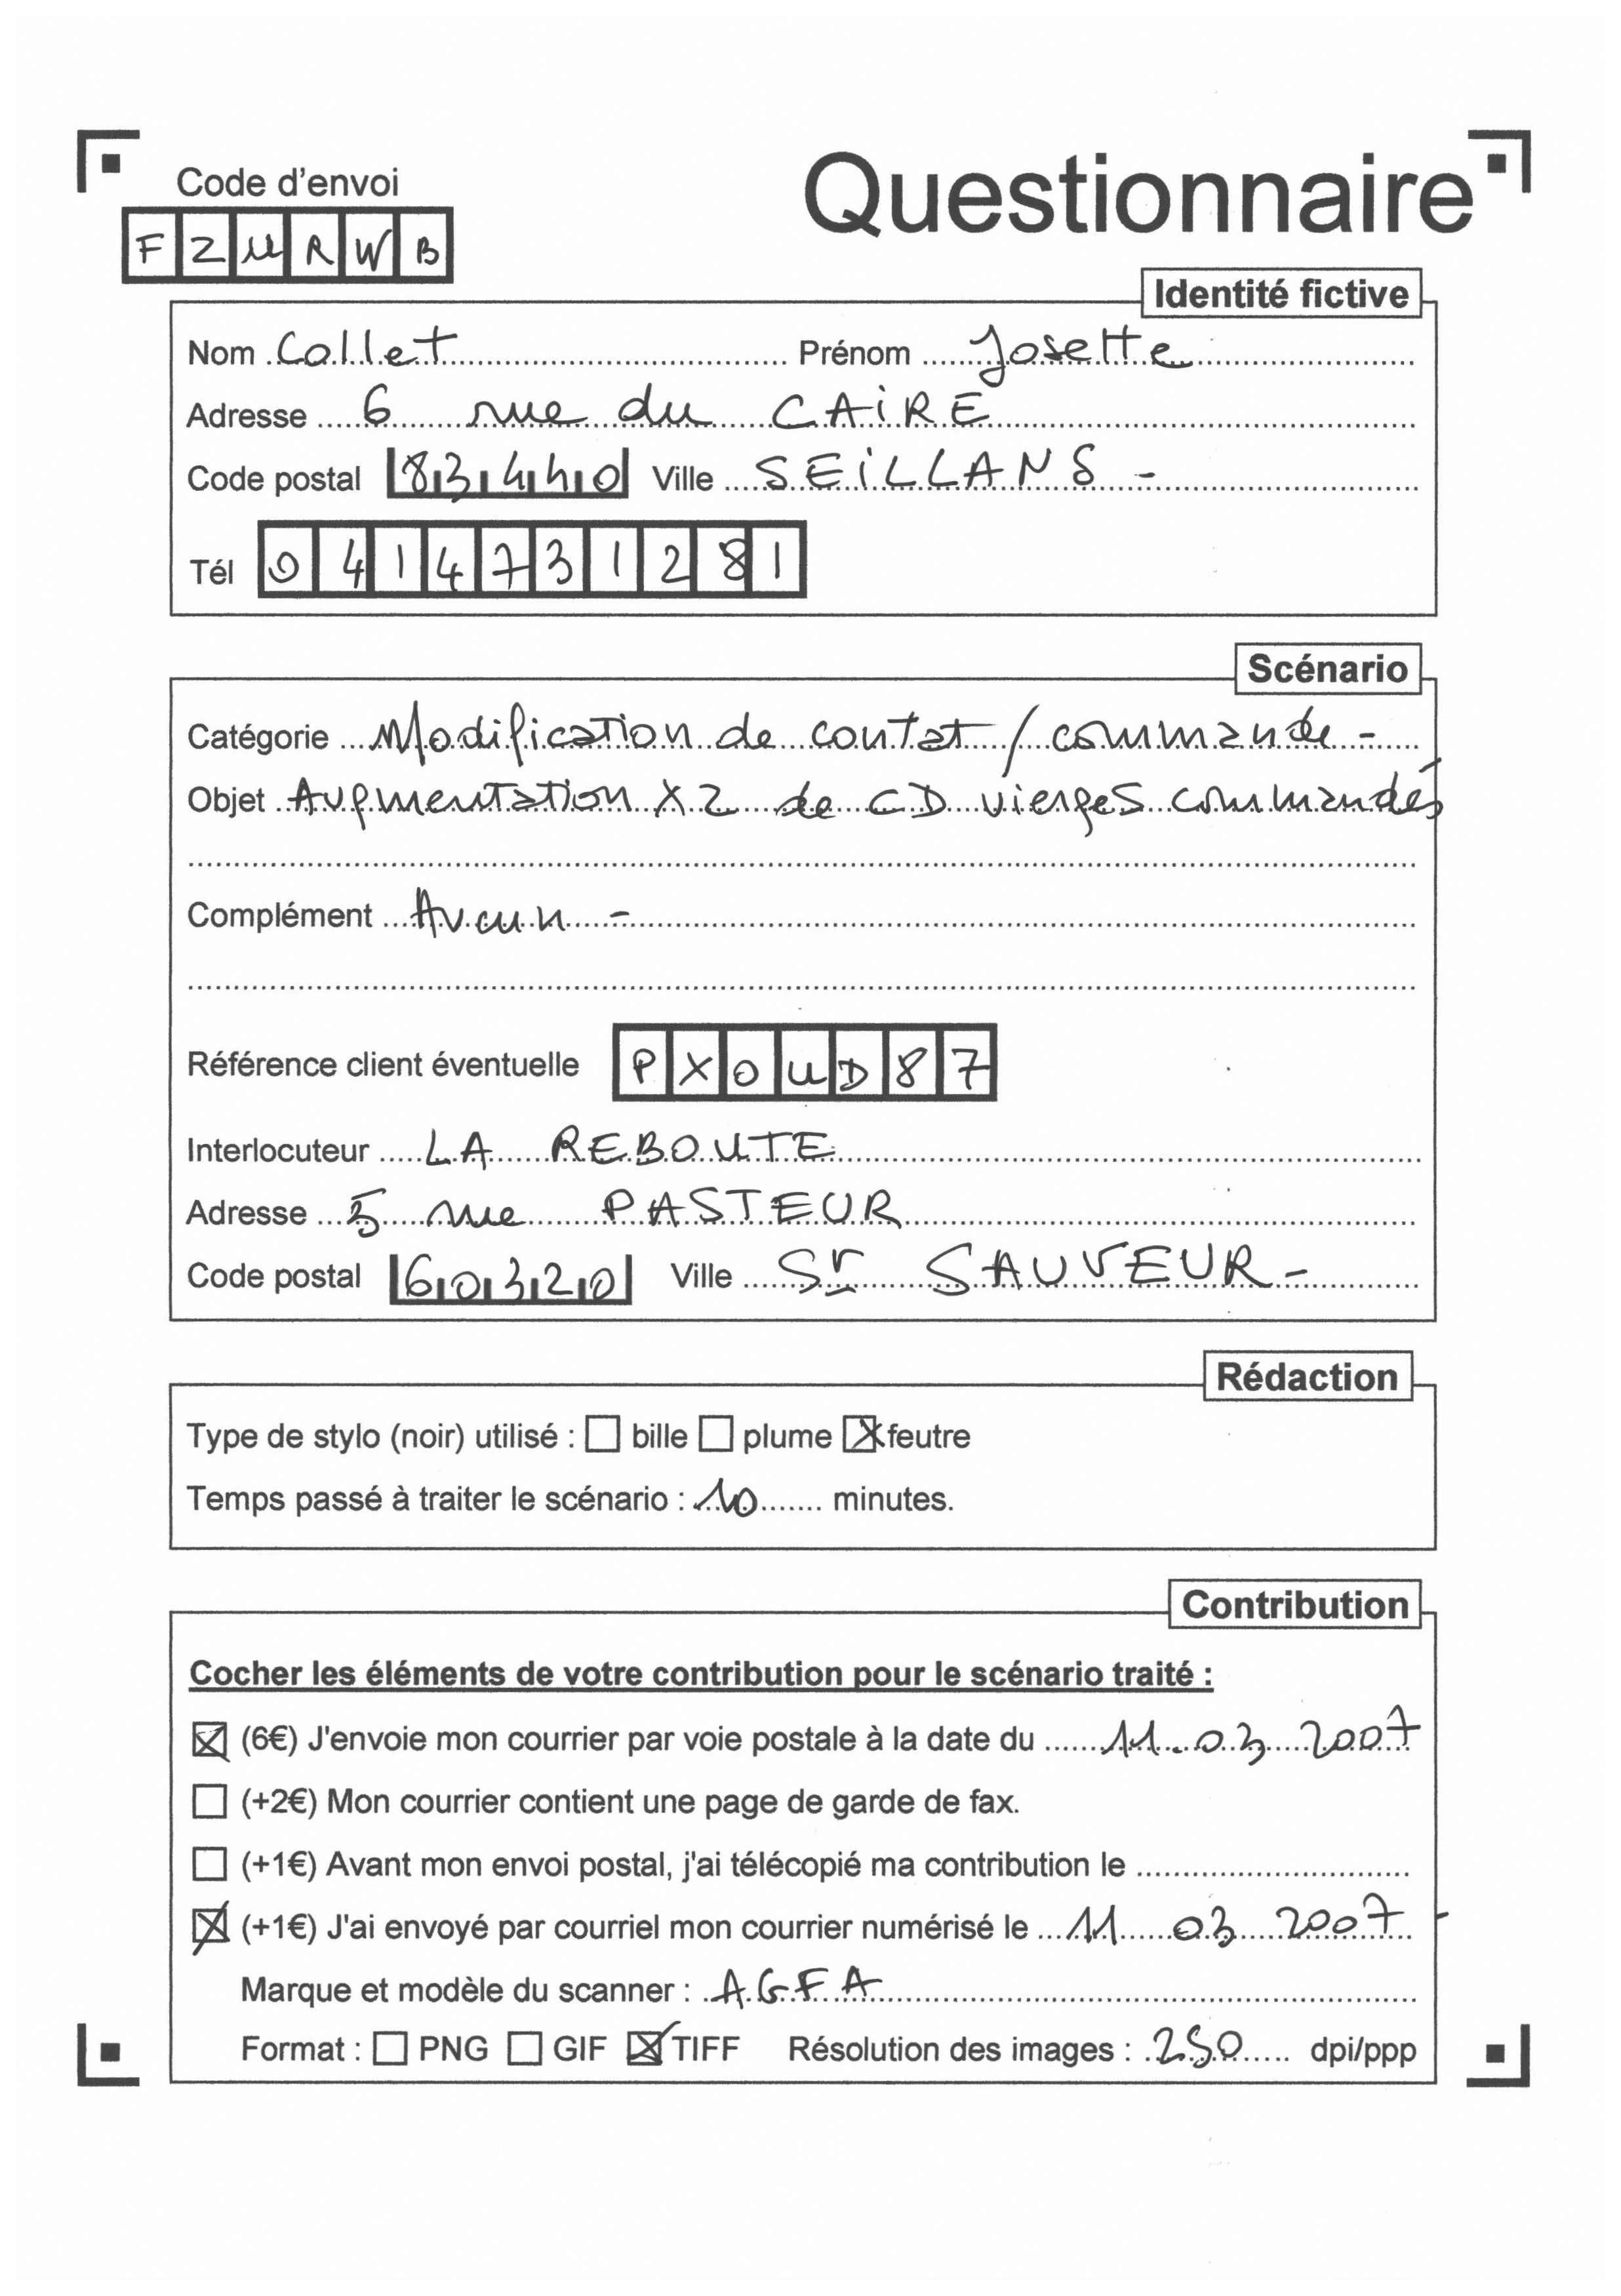 Questionnaire
Code d'envoi
FZURWB
Identité fictive
Nom Collet Prénom Josette
Adresse 6 rue du CAIRE
Code postal 83440 Ville SEILLANS -
Tél 0414731281
Scénario
Catégorie Modification de contat / commande -
Objet Augmentation X2 de CD vierges commandés
Complément Aucun -
Référence client éventuelle PXOUD87
Interlocuteur LA REBOUTE
Adresse 5 rue PASTEUR
Code postal 60320 Ville St SAUVEUR -
Rédaction
Type de stylo (noir) utilisé : ☐ bille ☐ plume ☒ feutre
Temps passé à traiter le scénario : 10 minutes.
Contribution
Cocher les éléments de votre contribution pour le scénario traité :
☒ (6€) J'envoie mon courrier par voie postale à la date du 11.03 2007
☐ (+2€) Mon courrier contient une page de garde de fax.
☐ (+1€) Avant mon envoi postal, j'ai télécopié ma contribution le
☒ (+1€) J'ai envoyé par courriel mon courrier numérisé le 11 03 2007 -
Marque et modèle du scanner : AGFA
Format : ☐ PNG ☐ GIF ☒ TIFF Résolution des images : 250 dpi/ppp